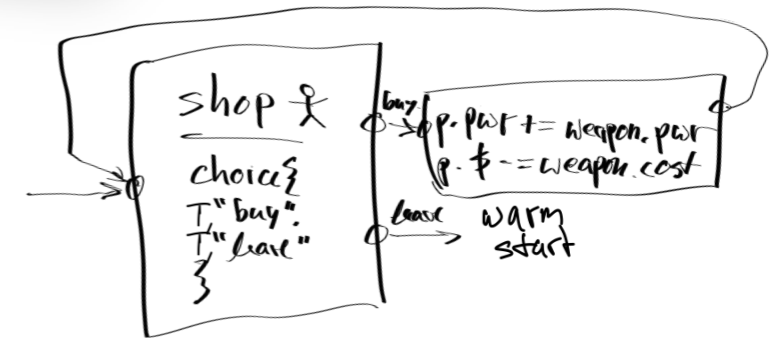 shop
choice{
T"buy".
T"leave"
}
buy
p.pwr += weapon.pwr
p.$ -= weapon.cost
leave
warm
start